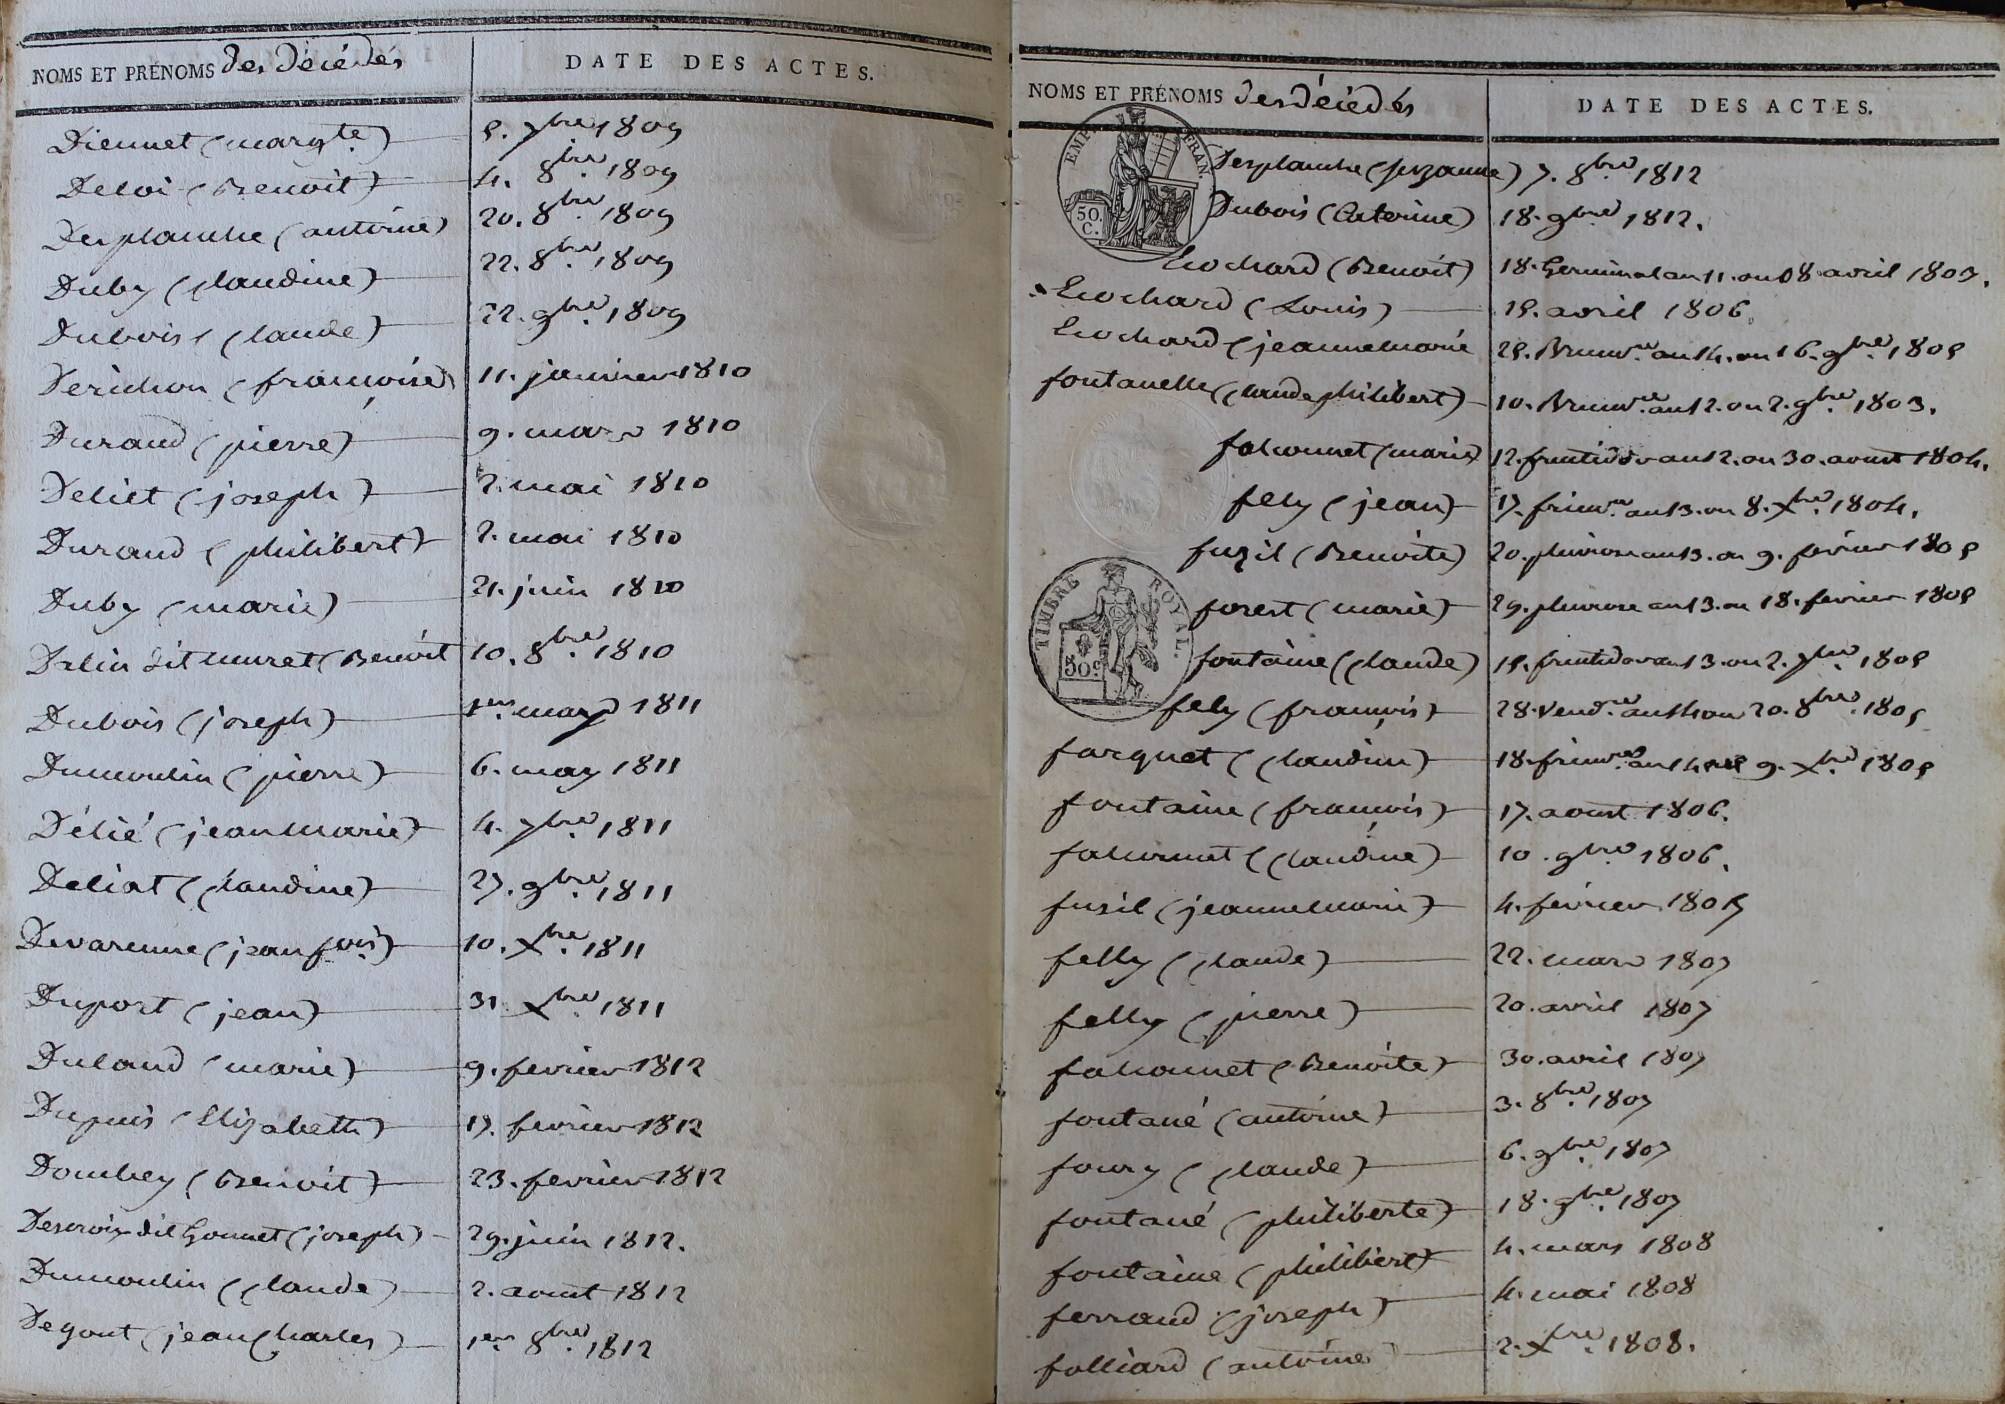 NOMS ET PRÉNOMS des décédés DATE DES ACTES.
Diennet (margte) 5. 7bre 1809
Deloi (Benoit) 4. 8bre 1809
Desplanche (antoine) 20. 8bre 1809
Duby (Claudine) 22. 8bre 1809
Dubois (Claude) 22. 9bre 1809
Derichon (françoise) 11. janvier 1810
Durand (pierre) 9. mars 1810
Deliet (joseph) 2. mai 1810
Durand (philibert) 2. mai 1810
Duby (marie) 21. juin 1810
Drlin dit muret (Benoit 10. 8bre 1810
Dubois (joseph) 1er mars 1811
Dumoulin (pierre) 6. may 1811
Délié (jeanmarie) 4. 7bre 1811
Deliat (Claudine) 27. 9bre 1811
Devarenne (jean fois) 10. Xbre 1811
Duport (jean) 31 Xbre 1811
Duland (marie) 9. fevrier 1812
Dupuis (Elizabeth) 17. fevrier 1812
Dombey (Benoit) 23. fevrier 1812
Descroix dit Gonnet (joseph) 29. juin 1812.
Dumoulin (Claude) 2. aout 1812
Degout (jean Charles) 1er 8bre 1812
NOMS ET PRÉNOMS des décédés DATE DES ACTES.
EMP. FRAN.
50. C.
Desplanche (suzanne) 7. 8bre 1812
Dubois (Caterine) 18. 9bre 1812.
Ecochard (Benoit) 18. Germinal an 11. ou 8 avril 1803.
Ecochard (Louis) 15. avril 1806.
Ecochard (jeannemarie 25. Brumre an 14. ou 16. 9bre 1805
fontanelle (Claude philibert) 10. Brumre an 12. ou 2. 9bre 1803.
falconnet (marie) 12. fructidor an 12. ou 30. aoust 1804.
fely (jean) 17. frimre an 13. ou 8. Xbre 1804.
fuzil (Benoite) 20. pluviose an 13. ou 9. février 1805
forest (marie) 29. pluviose an 13. ou 18. fevrier 1805
TIMBRE ROYAL.
50c
fontaine (Claude) 15. fructidor an 13. ou 2. 7bre 1805
fely (françois) 28. Vendre an 14 ou 20. 8bre 1805
farquet (Claudine) 18. frimre an 14 ou 9. Xbre 1805
fontaine (françois) 17. aoust 1806.
falconnet (Claudine) 10. 9bre 1806.
fusil (jeannemarie) 4. février 1807
felly (Claude) 22. mars 1807
felly (pierre) 20. avril 1807
falconnet (Benoite) 30. avril 1807
fontané (antoine) 3. 8bre 1807
foury (Claude) 6. 9bre 1807
fontané (philiberte) 18. 9bre 1807
fontaine (philibert) 4. mars 1808
ferrand (joseph) 4. mai 1808
folliard (antoine) 2. Xbre 1808.